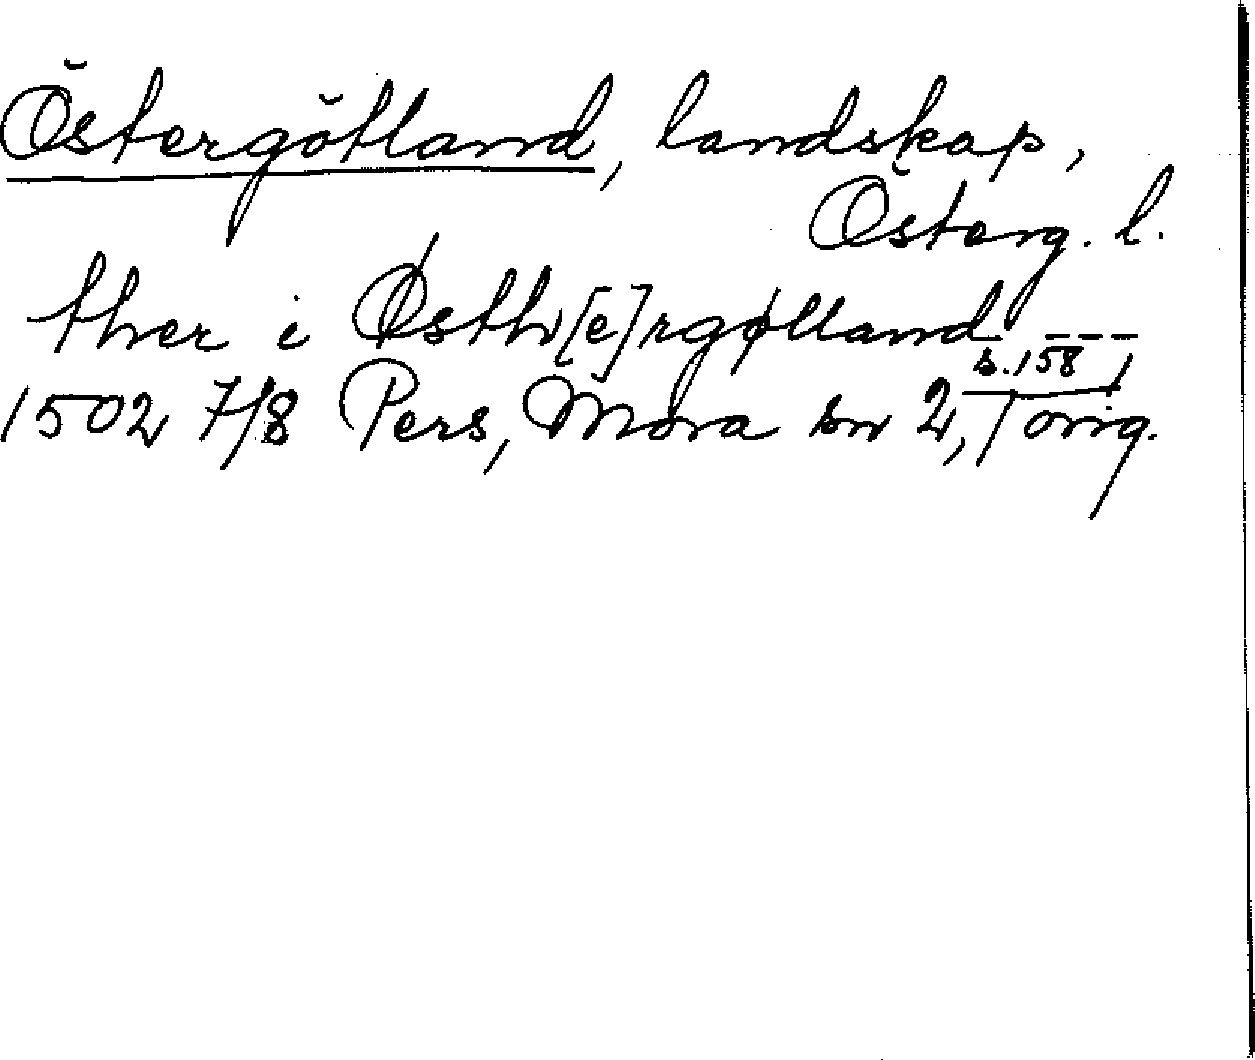 Östergötland, landskap,
Österg. l.
ther i Østh[e]rgøtland _ _ _ _
s. 158,
1502 7/8 Pers, Mora sn 2, orig.